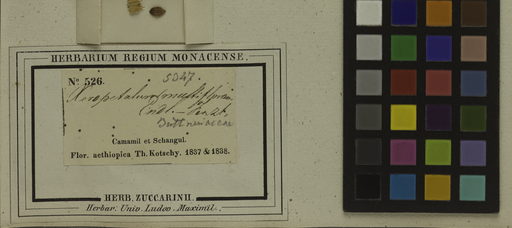 HERBARIUM REGIUM MONACENSE.
No. 526.
5047.
Büttneriaceae
Camamil et Schangul.
Flor. aethiopica Th. Kotschy. 1837 & 1838.
HERB. ZUCCARINII.
Herbar. Univ. Ludov. Maximil.